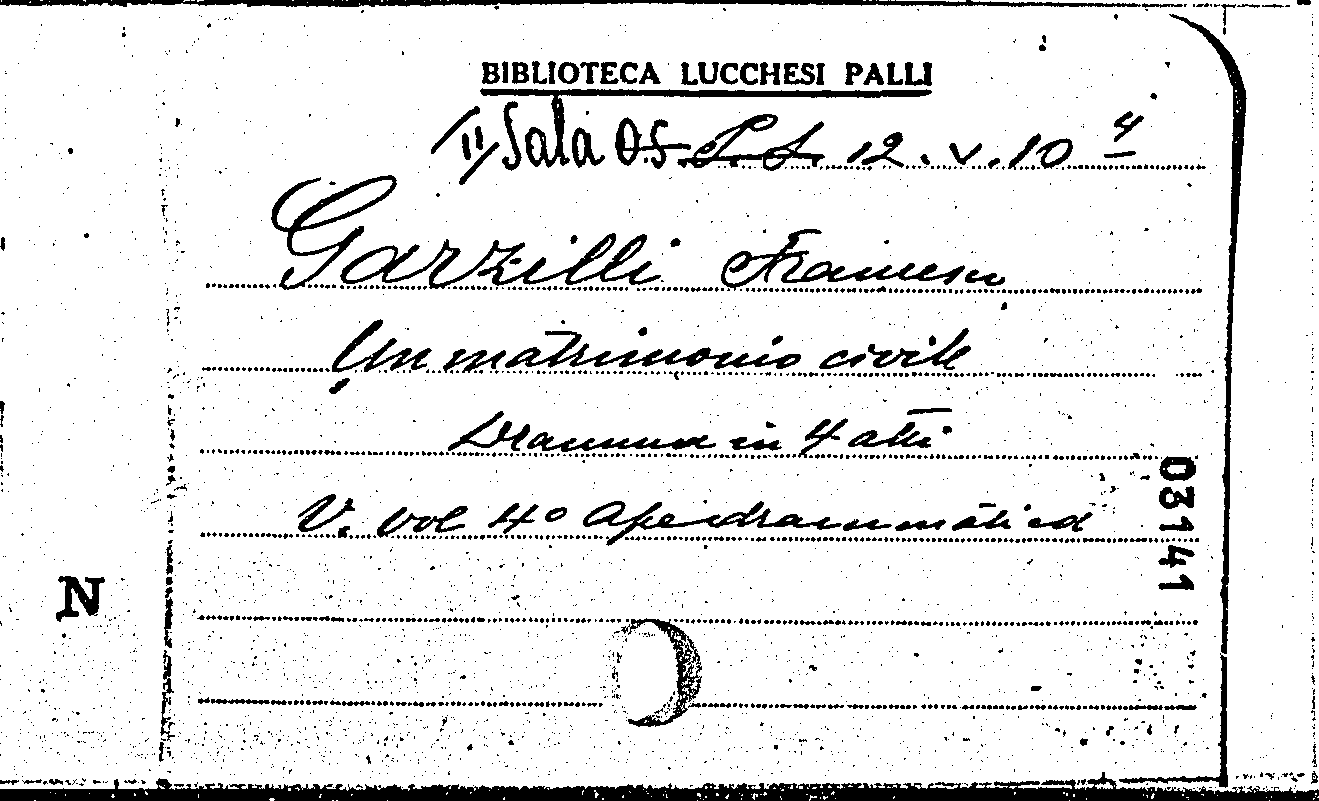 BIBLIOTECA LUCCHESI PALLI
II Sala 12. V. 10 4
Garzilli Francesco
Un matrimonio civile
Dramma in 4 atti
V. vol 4º Ape drammatica
03141
N